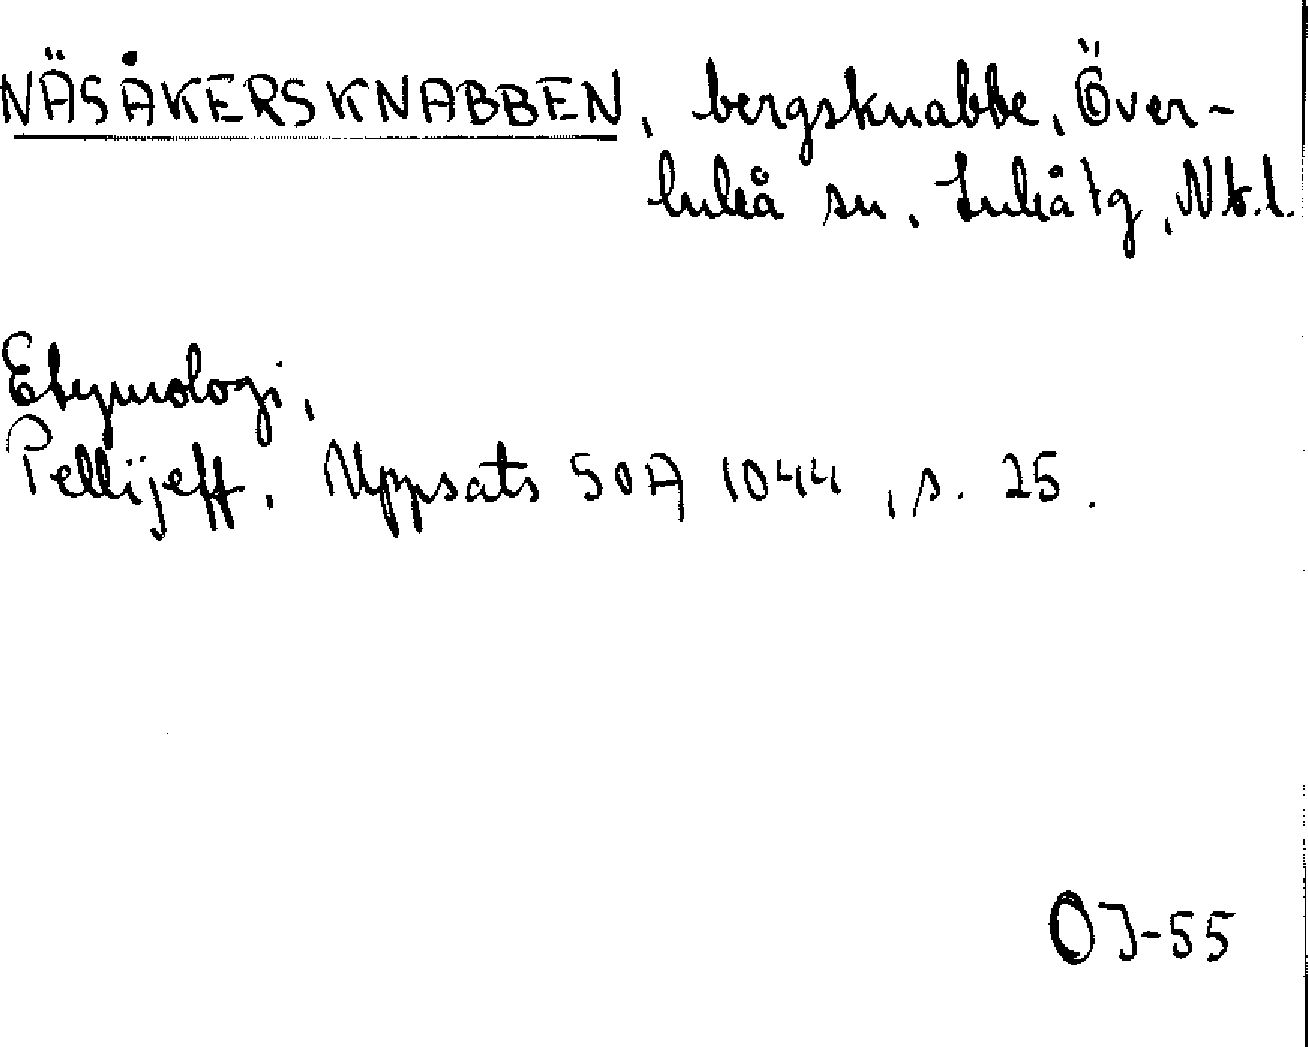 NÄSÅKERSKNABBEN, bergsknabbe, Över-
luleå sn, Luleå tg, Nb.l.
Etymologi,
Pellijeff, Uppsats SOA 1044, s. 25.
OJ-55